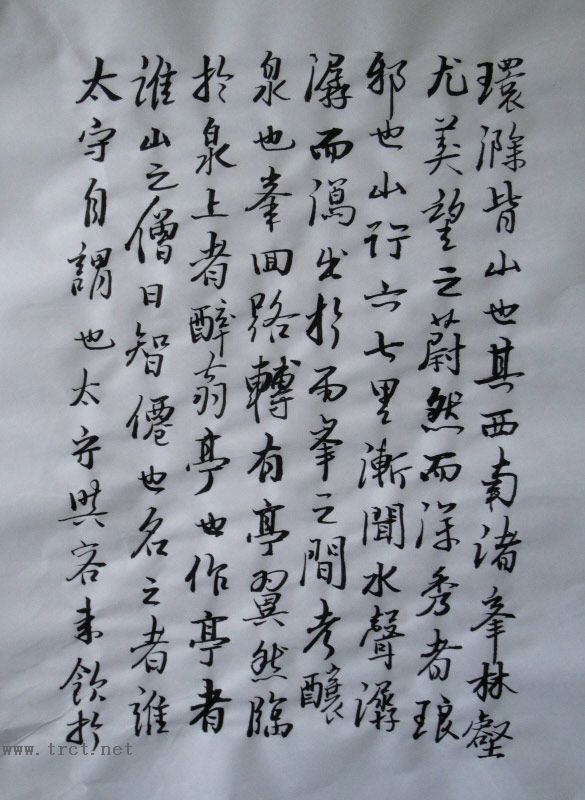 環滁皆山也其西南诸峯林壑
尤美望之蔚然而深秀者琅
邪也山行六七里漸聞水聲潺
潺而瀉出於两峯之間者釀
泉也峯回路轉有亭翼然臨
於泉上者醉翁亭也作亭者
誰山之僧曰智僊也名之者誰
太守自謂也太守與客来飲於
www.trct.net